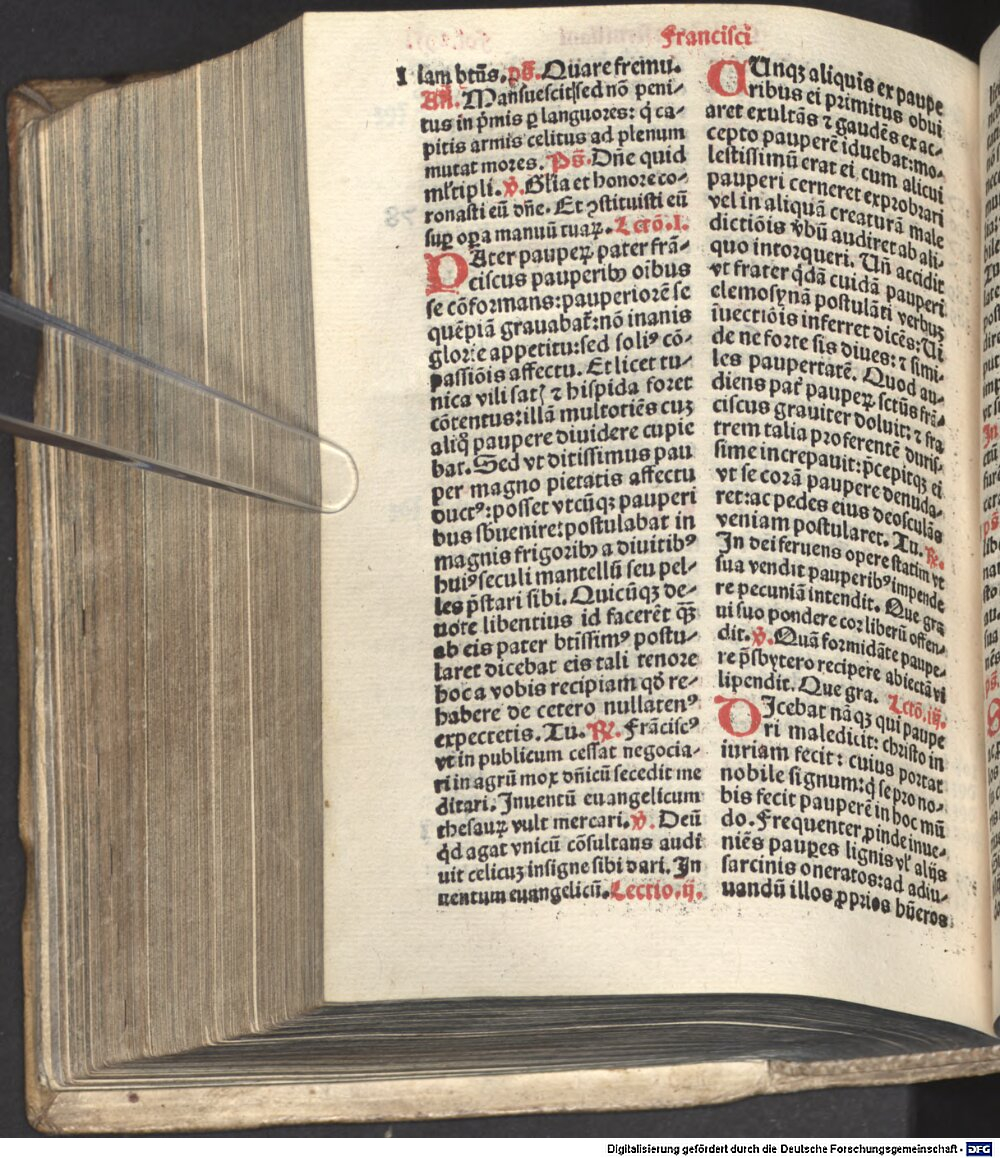 Francisci
lam btūs. ps̄. Quare fremu-
An̄. Mansuescit sed nō peni-
tus in p̄mis ꝑ languores: q̄ ca-
pitis armis celitus ad plenum
mutat mores. Ps̄. Dn̄e quid
ml̄tipli. ꝟ. Gl̄ia et honore co-
ronasti eū dn̄e. Et ꝯstituisti eū
suꝑ oꝑa manuū tuaꝝ. Lectō. I.
PAter pauperꝝ pater frā-
ciscus pauperibꝰ oībus
se cōformans: pauperiorē se
quēpiā grauabat̄: nō inanis
glorie appetitu: sed soliꝰ cō-
passiōis affectu. Et licet tu-
nica vili satꝭ ⁊ hispida foret
cōtentus: illā multotiēs cuꝫ
aliq̄ paupere diuidere cupie
bat. Sed vt ditissimus pau
per magno pietatis affectu
ductꝰ: posset vtcūqꝫ pauperi
bus sbuenire: postulabat in
magnis frigoribꝰ a diuitibꝰ
huiꝰ seculi mantellū seu pel-
les p̄stari sibi. Quicūqꝫ de-
uote libentius id facerēt qꝫ̄
ab eis pater btīssimꝰ postu-
laret dicebat eis tali tenore
hoc a vobis recipiam qd̄ re-
habere de cetero nullatenꝰ
expectetis. Tu. ℟. Frāciscꝰ
vt in publicum cessat negocia-
ri in agrū mox dn̄icū secedit me
ditari. Inuentū euangelicum
thesauꝝ vult mercari. ꝟ. Deū
qd̄ agat vnicū cōsultans audi
uit celicuꝫ insigne sibi dari. In
uentum euangelicū. Lectio. ij.
CUnqꝫ aliquis ex paupe
ribus ei primitus obui
aret exultās ⁊ gaudēs ex ac-
cepto pauperē iduebat: mo-
lestissimū erat ei cum alicui
pauperi cerneret exprobrari
vel in aliquā creaturā male
dictiōis v̄bū audiret ab ali-
quo intorqueri. Un̄ accidit
vt frater qd̄ā cuidā pauperi
elemosynā postulāti verbuꝫ
iuectiōis inferret dicēs: Ui
de ne forte sis diues: ⁊ simi-
les paupertatē. Quod au-
diens pat̄ pauperꝝ sctūs frā-
ciscus grauiter doluit: ⁊ fra
trem talia proferentē duris-
sime increpauit: p̄cepitqꝫ ei
vt se corā paupere denuda-
ret: ac pedes eius deosculās
veniam postularet. Tu. ℟.
In dei feruens opere statim vt
sua vendit pauperibꝰ impende
re pecuniā intendit. Que gra
ui suo pondere cor liberū offen-
dit. ꝟ. Quā formidāte paupe-
re p̄sbytero recipere abiectā vi
lipendit. Que gra. Lectō. iij.
DIcebat nāqꝫ qui paupe
ri maledicit: christo in
iuriam fecit: cuius portat
nobile signum: q̄ se pro no-
bis fecit pauperē in hoc mū
do. Frequenter ꝓinde inue-
niēs pauꝑes lignis vl̓ alijs
sarcinis oneratos: ad adiu-
uandū illos ꝓprios hūeros
Digitalisierung gefördert durch die Deutsche Forschungsgemeinschaft - DFG